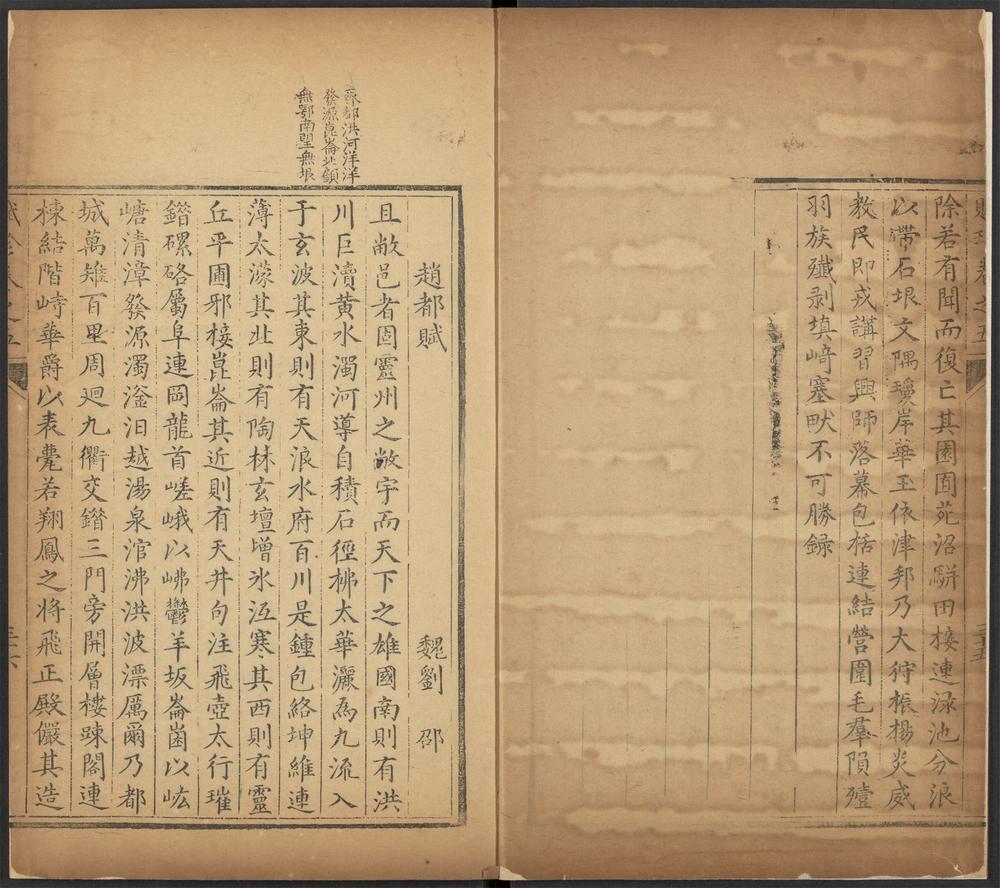 除若有聞而復亡其園囿苑沼駢田接連渌池分浪
以帶石垠文隅瓊岸華玉依津邦乃大狩振揚炎威
教民即戎講習興師落幕包括連結營圍毛羣隕殪
羽族殲剥填﨑塞畎不可勝録
齊都洪河洋洋
發源崑崙北顧
無鄂南望無垠
趙都賦
魏劉 邵
且敞邑者固靈州之敞宇而天下之雄國南則有洪
川巨瀆黄水濁河導自積石徑拂太華灑為九流入
于玄波其東則有天浪水府百川是鍾包絡坤維連
薄太濛其北則有陶林玄壇増氷沍寒其西則有靈
丘平圃邪接崑崙其近則有天井句注飛壺太行璀
錯磥硌屬阜連岡龍首嵯峨以岪鬱羊坂崙菌以
嵣清漳發源濁滏汩越湯泉涫沸洪波漂厲爾乃都
城萬雉百里周廻九衢交錯三門旁開層樓踈閣連
棟結階峙華爵以表甍若翔鳳之将飛正殿儼其造